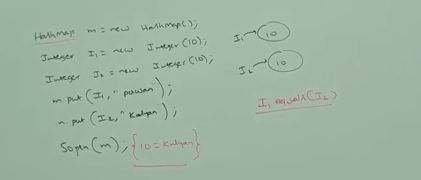 HashMap m = new HashMap();
Integer I1 = new Integer(10);
Integer I2 = new Integer(10);
m.put(I1, "pawan");
m.put(I2, "Kalyan");
Sopln(m); {10=Kalyan}
I1 → 10
I2 → 10
I1.equals(I2)